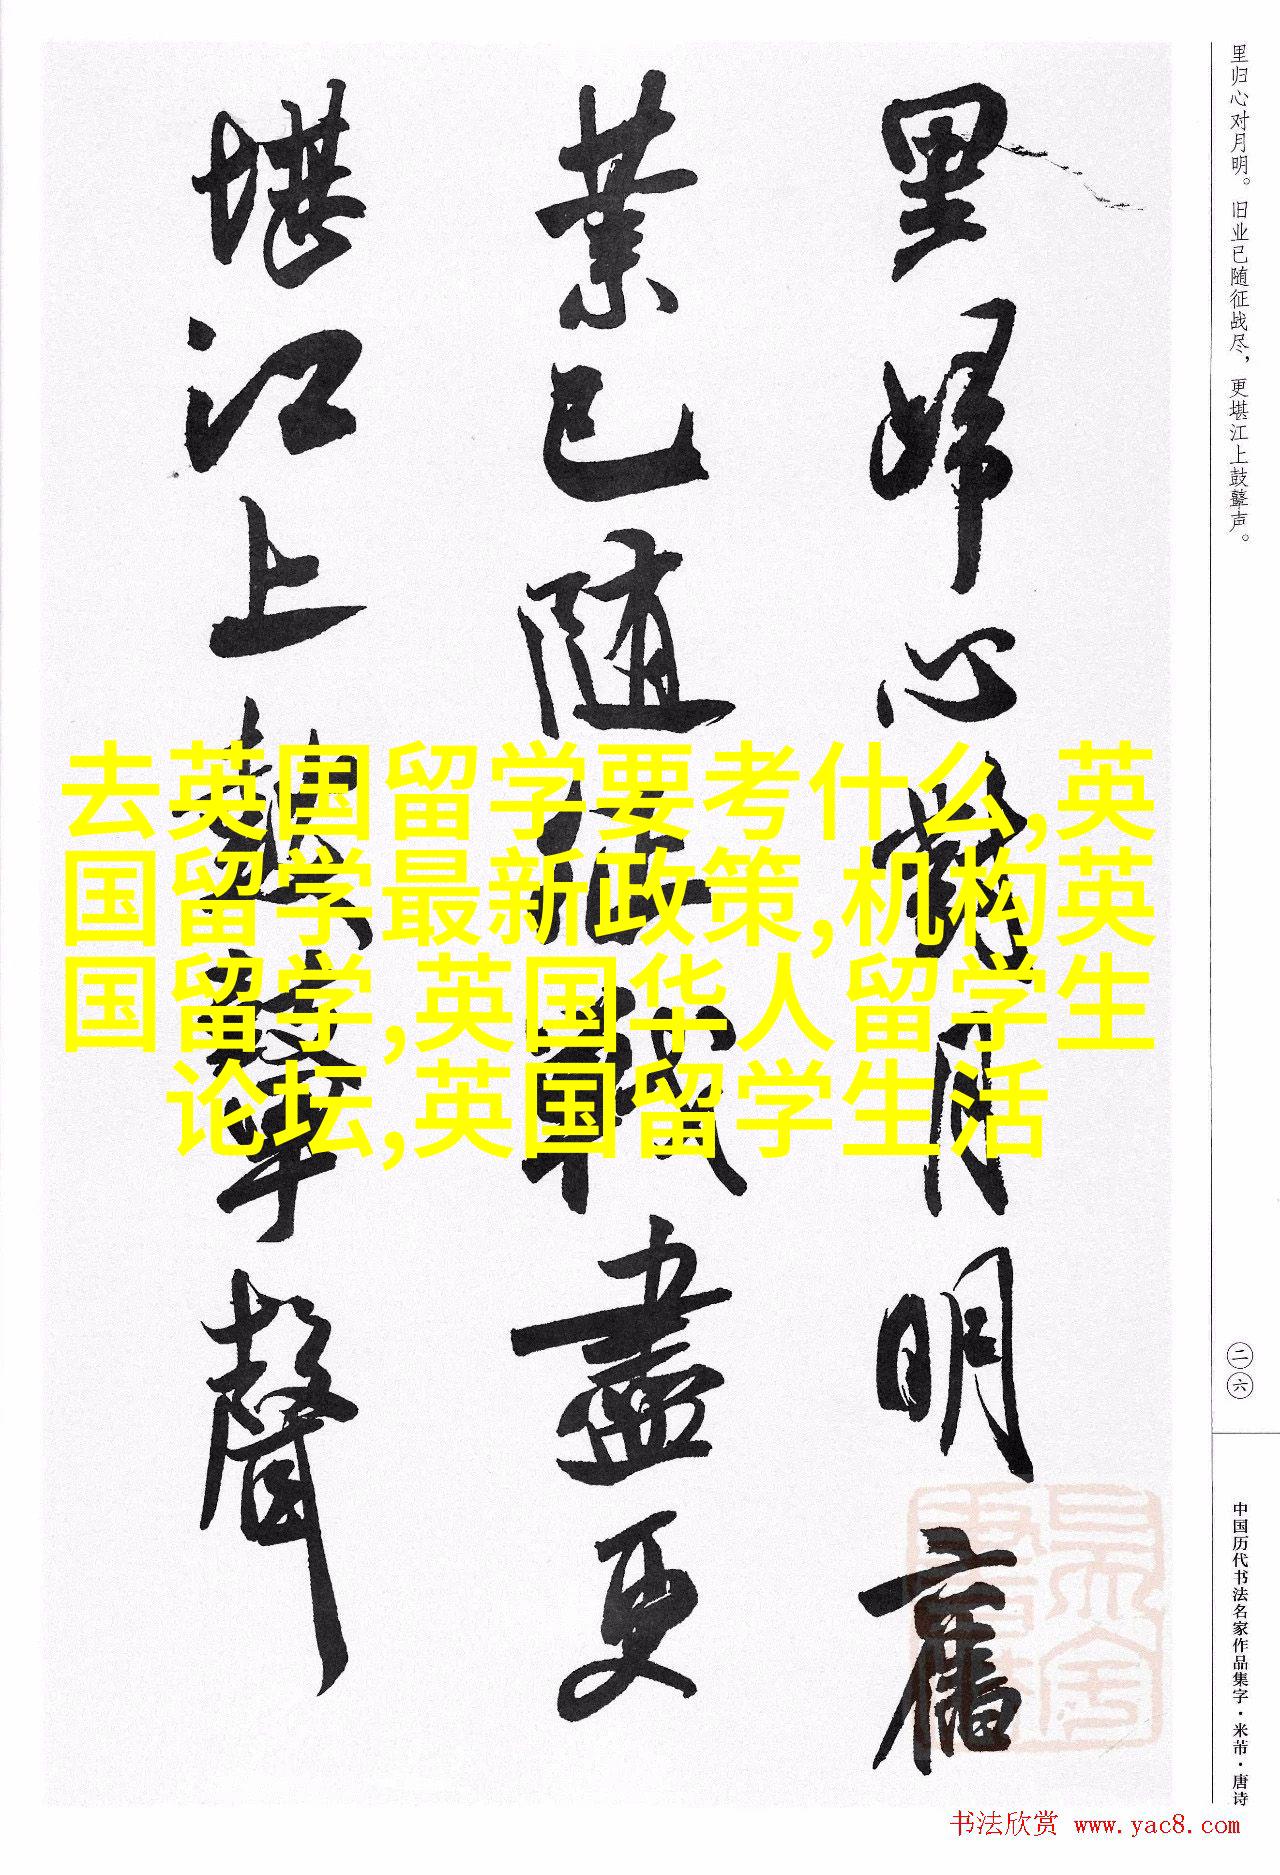 里归心对月明。旧业已随征战尽，更堪江上鼓鼙声。
里歸心對月明舊
業已隨征戰盡更
堪江上鼓鼙聲
去英国留学要考什么,英
国留学最新政策,机构英
国留学,英国华人留学生
论坛,英国留学生活
二六
中国历代书法名家作品集字·米芾·唐诗
书法欣赏 www.yac8.com